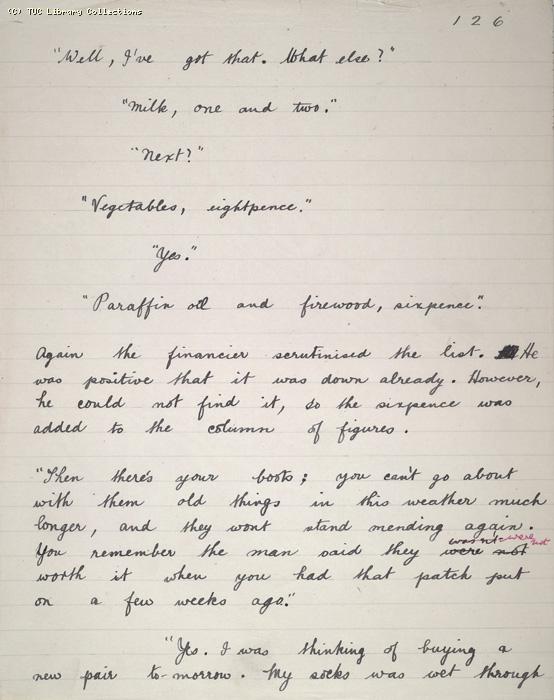 (C) TUC Library Collections
126
"Well, I've got that. What else?"
"Milk, one and two."
"Next?"
"Vegetables, eightpence."
"Yes."
"Paraffin oil and firewood, sixpence."
Again the financier scrutinised the list. He
was positive that it was down already. However,
he could not find it, so the sixpence was
added to the column of figures.
"Then there's your boots; you can't go about
with them old things in this weather much
longer, and they wont stand mending again.
wasn't were not
You remember the man said they were not
worth it when you had that patch put
on a few weeks ago."
"Yes. I was thinking of buying a
new pair to-morrow. My socks was wet through